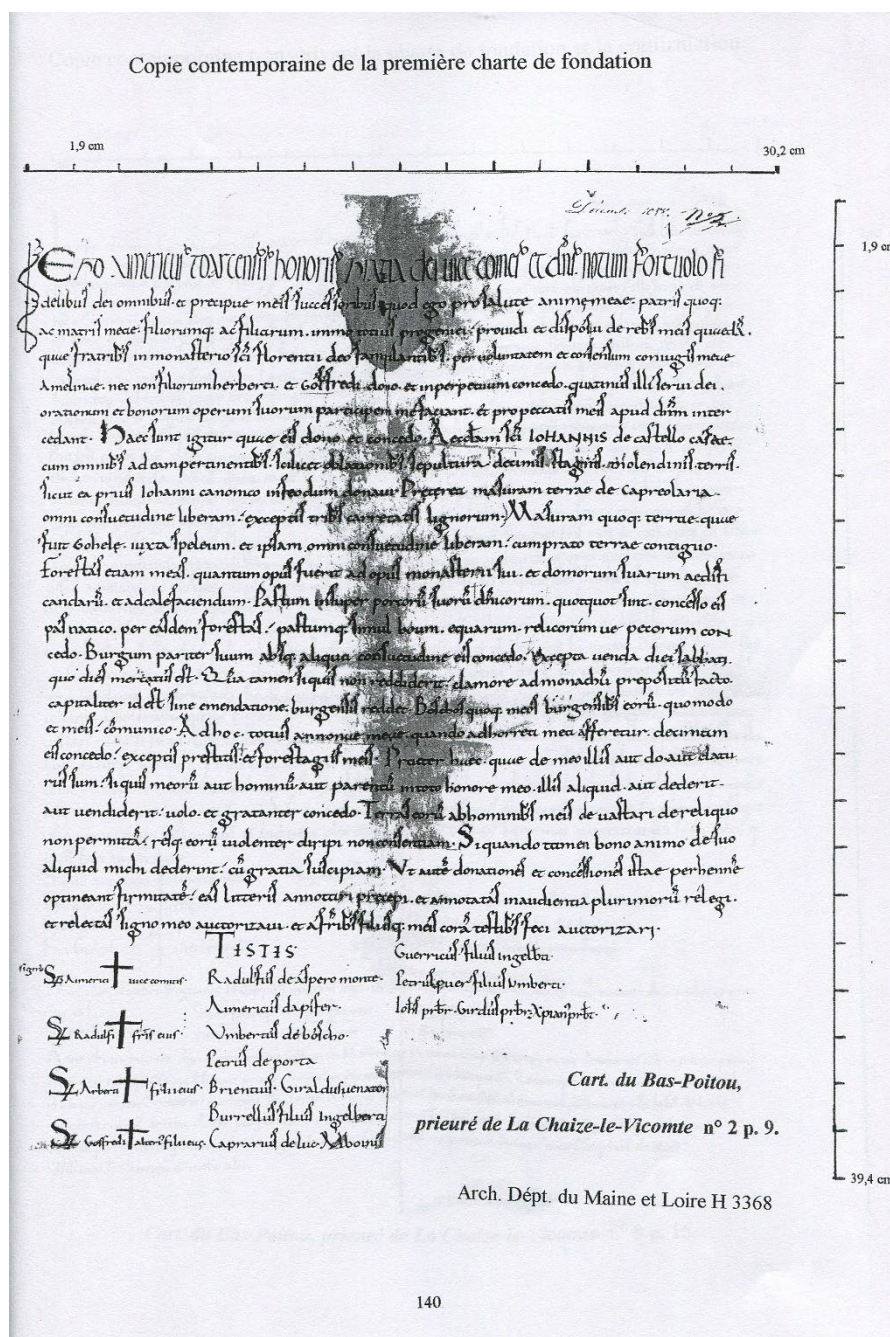 Copie contemporaine de la première charte de fondation
1,9 cm
30,2 cm
1,9 cm
EGO AIMERICUS TOARCENSIS HONORIS GRATIA dei vice comes et dns notum fore volo fi
delibus dei omnibus et precipue meis successoribus quod ego pro salute animę meae patris quoq:
ac matris meae filiorumq: ac filiarum immo totius progeniei providi et disposui de rebs meis quaedā
quae fratribs in monasterio sci florentii deo famulantibs per voluntatem et consensum coniugis meae
Amelinae nec non filiorum herberti et Goffredi dono et in perpetuum concedo quatinus illi servi dei
orationum et bonorum operum suorum participem me faciant et pro peccatis meis apud dnm inter
cedant. Haec sunt igitur quae eis dono et concedo. Aecclam sci IOHANNIS de castello casae
cum omnibs ad eam pertinentibs scilicet oblationibs sepultura decimis stagnis molendinis terris
sicut ea prius Iohanni canonico in feodum donavi. Preterea masuram terrae de Capreolaria
omni consuetudine liberam exceptis tribs carretatis lignorum. Masuram quoq: terrae quae
fuit Gohele iuxta speleum et ipsam omni consuetudine liberam cum prato terrae contiguo.
Forestas etiam meas quantum opus fuerit ad opus monasterii sui et domorum suarum aedifi
candarū et ad calefaciendum. Pastum insuper porcorū suorū dnicorum quotquot sint concesso eis
pasnatico per easdem forestas pastumq: simul boum equarum relicorum ve pecorum con
cedo. Burgum pariter suum absq: aliqua consuetudine eis concedo. Excepta venda diei sabbati
quo dies mercatus est. Quia tamen siquis non reddiderit clamore ad monachū prepositū facto
capitaliter id est sine emendatione burgensis reddet. Boschos quoq: meos burgensibs eorū quomodo
et meis comunico. Ad hoc totius annonae meae quando ad horrea mea afferetur decimam
eis concedo exceptis prestitis et forestagiis meis. Praeter haec quae de meo illis aut do aut datu
rus sum si quis meorū aut hominū aut parentū in toto honore meo illis aliquid aut dederit
aut vendiderit volo et gratanter concedo. Terras eorū ab hominibs meis devastari de reliquo
non permittā resq: eorū violenter diripi non consentiam. Si quando tamen bono animo de suo
aliquid michi dederint cū gratia suscipiam. Ut autē donationes et concessiones istae perhennē
optineant firmitatē eas litteris annotari precepi et annotatas in audientia plurimorū relegi
et relectas signo meo auctorizavi et a fribs filiisq: meis corā testibs feci auctorizari.
TESTIS
S Aimerici vice comitis
S Radulfi fris eius
S Arberti filii eius
S Goffredi alterius filii eius
Radulfus de aspero monte
Aimericus dapifer
Umbertus de boscho
Petrus de porta
Brientius Giraldus venator
Burrellus filius ingelberti
Caprarius de luc
Guerricus filius ingelberti
Petrus puer filius Umberti
Iohs prbr Girdus prbr Xpianus prbr
Cart. du Bas-Poitou,
prieuré de La Chaize-le-Vicomte n° 2 p. 9.
39,4 cm
Arch. Dépt. du Maine et Loire H 3368
140